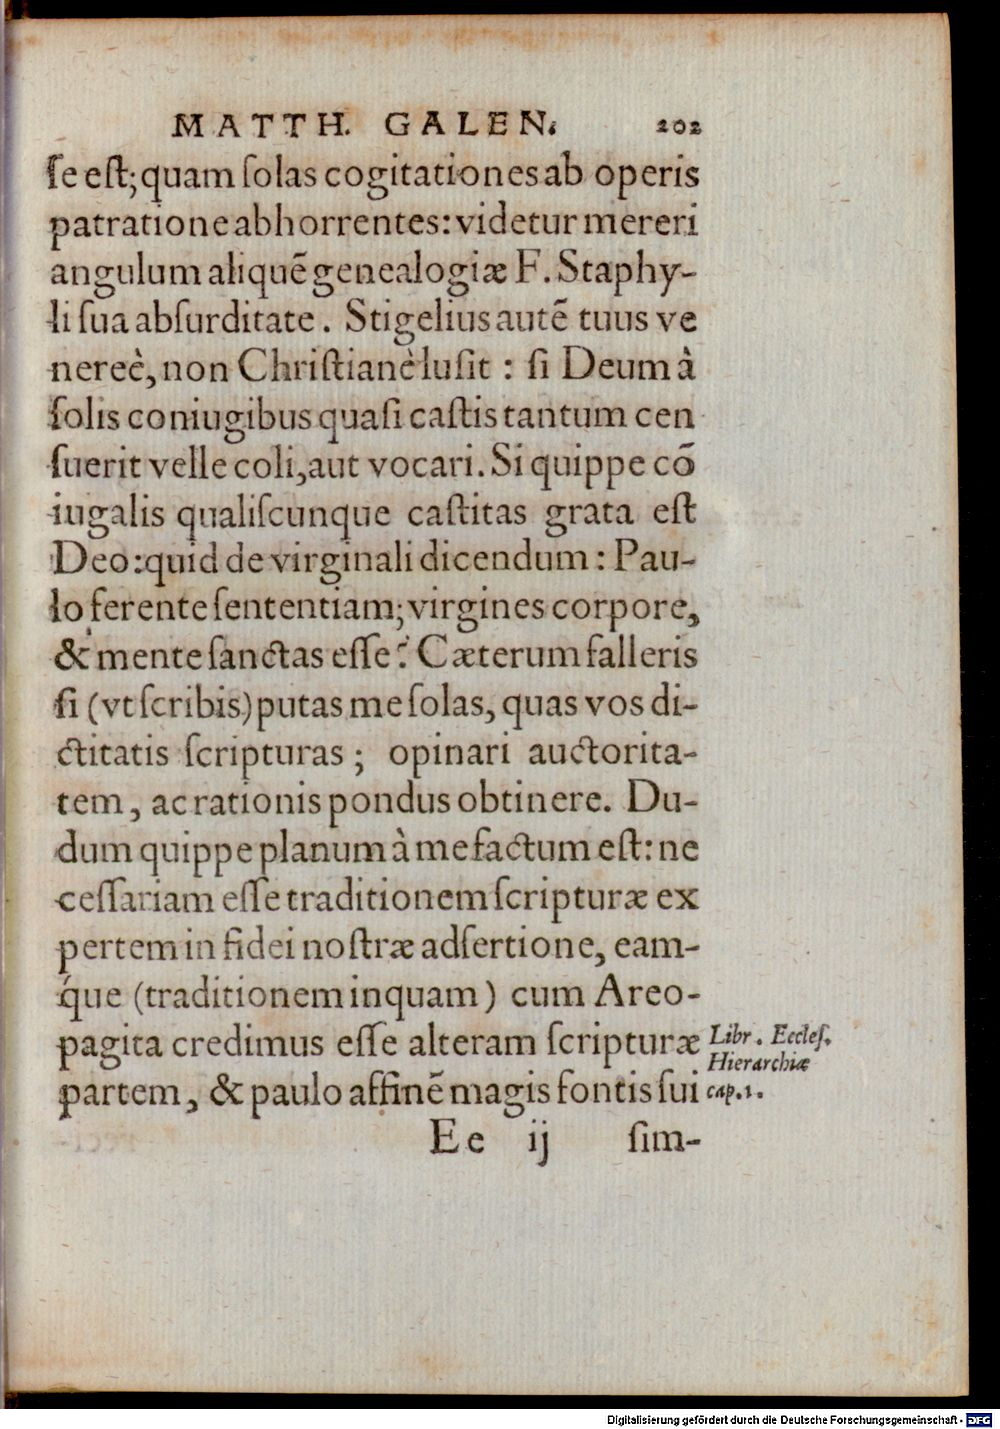 MATTH. GALEN. 202
ſe eſt; quam ſolas cogitationes ab operis
patratione abhorrentes: videtur mereri
angulum aliquē genealogiæ F. Staphy-
li ſua abſurditate. Stigelius autē tuus ve
nereè, non Chriſtianè luſit : ſi Deum à
ſolis coniugibus quaſi caſtis tantum cen
ſuerit velle coli, aut vocari. Si quippe cō
iugalis qualiſcunque caſtitas grata eſt
Deo: quid de virginali dicendum : Pau-
lo ferente ſententiam; virgines corpore,
& mente ſanctas eſſe? Cæterum falleris
ſi (vt ſcribis) putas me ſolas, quas vos di-
ctitatis ſcripturas ; opinari auctorita-
tem, ac rationis pondus obtinere. Du-
dum quippe planum à me factum eſt: ne
ceſſariam eſſe traditionem ſcripturæ ex
pertem in fidei noſtræ adſertione, eam-
q́ue (traditionem inquam) cum Areo-
pagita credimus eſſe alteram ſcripturæ
partem, & paulo affinē magis fontis ſui
Libr. Eccleſ.
Hierarchiæ
cap. 1.
Ee ij ſim-
Digitalisierung gefördert durch die Deutsche Forschungsgemeinschaft - DFG